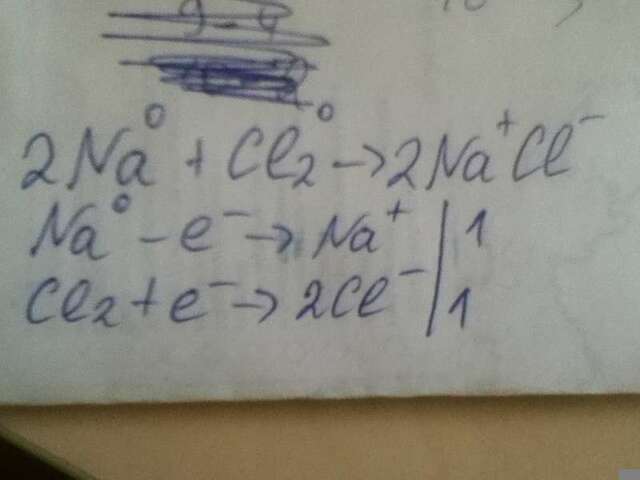 2Na⁰ + Cl₂⁰ → 2Na⁺Cl⁻
Na⁰ - e⁻ → Na⁺ | 1
Cl₂ + e⁻ → 2Cl⁻ | 1